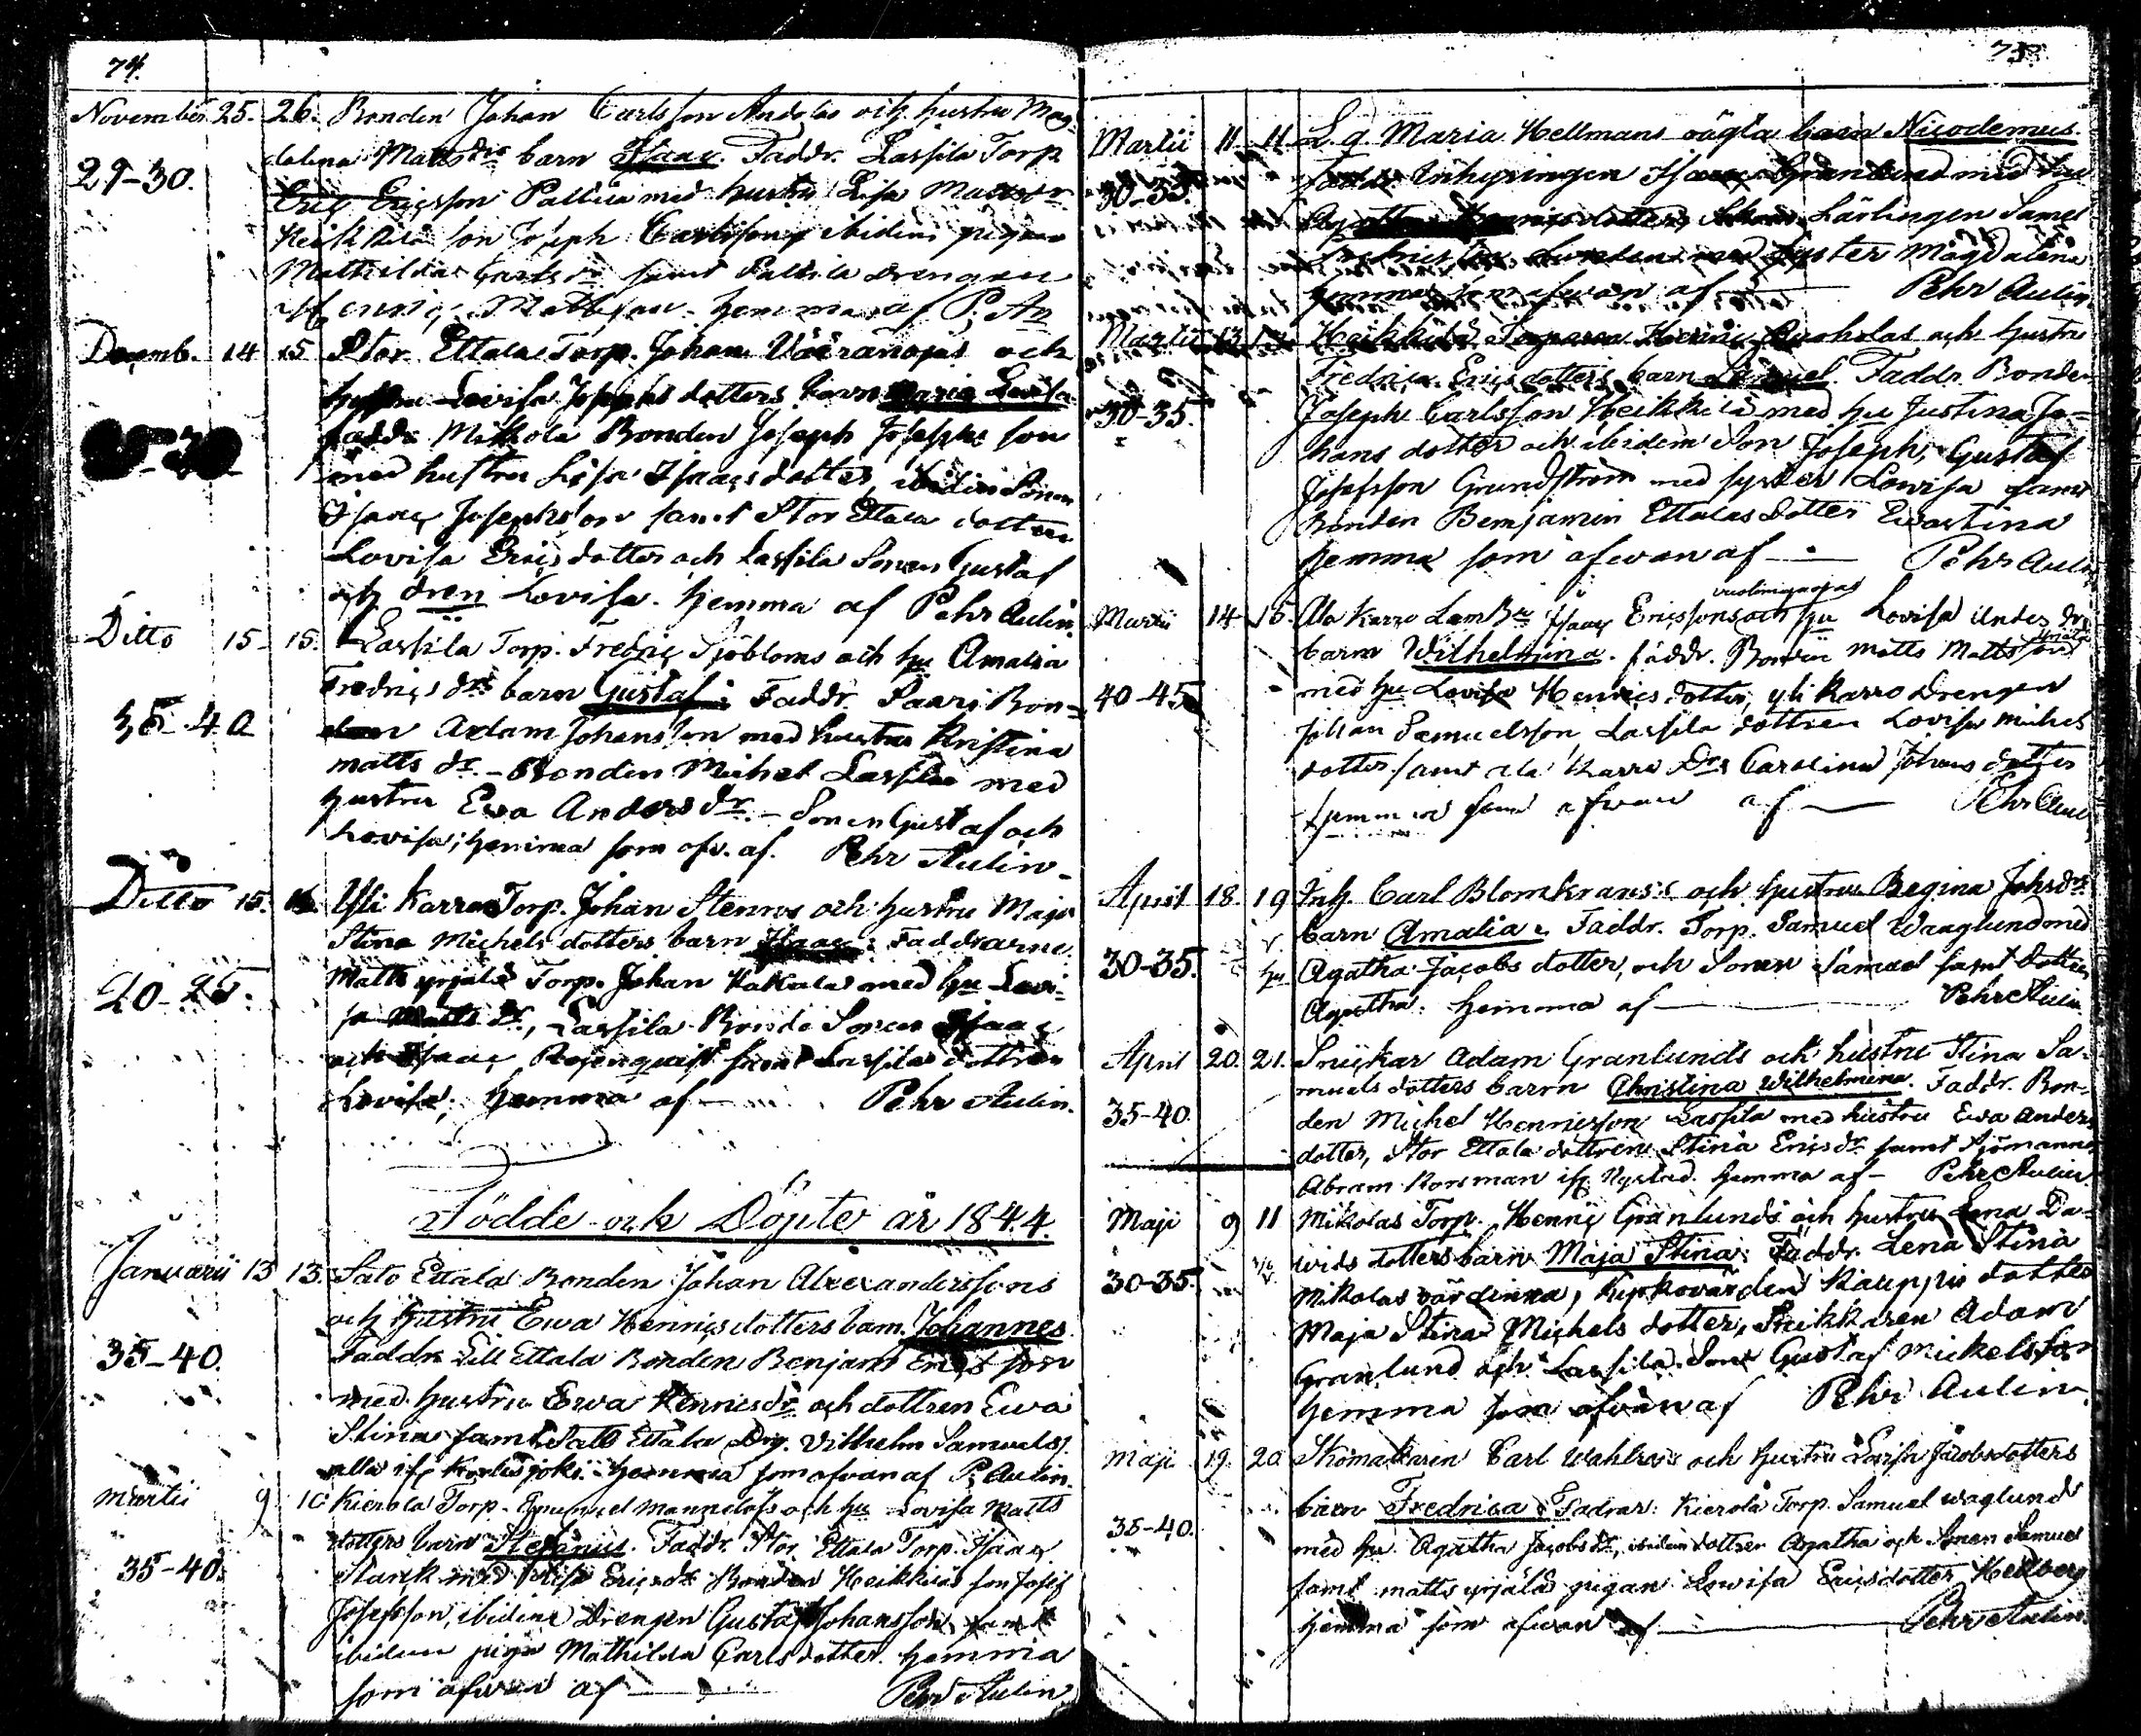 74.
November 25. 26. Bonden Johan Carlsson Andolas och hustru Mag-
dalena Mattsdrs barn Isaac. Faddr. Lassila Torp.
29-30.
Eric Ericsson Pallila med hustru Lisa Mattsdr
Heikkilä son Joseph Carlsson, ibidem pigan
Mathilda Carlsdr samt Lassila drengen
Henric Mattsson. hemma af P. An
Decemb. 14 15 Stor Ettala Torp. Johan Vääränojas och
hustru Lovisa Josephs dotters barn Maria Lovisa
faddr. Mikkola Bonden Joseph Josephsson
med hustru Lisa Isaacsdotter, ibidem Sonen
Isaac Josephsson samt Stor Ettala dottren
Lovisa Ericsdotter och Lassila Sonen Gustaf
och dren Lovisa. hemma af Pehr Aulin.
Ditto 15 15. Lassila Torp. Fredric Sjöbloms och hu Amalia
Fredricsdrs barn Gustaf; Faddr. Saari Bon-
35-40
den Adam Johansson med hustru Kristina
matts dr. - Bonden Michel Lassila med
hustru Eva Andersdr. - Sonen Gustaf och
Lovisa; hemma som ofv. af. Pehr Aulin.
Ditto 15. Yli Karro Torp. Johan Stenros och hustru Maja
Stina Michels dotters barn Isaac: Faddrarne
20-25.
Matts yrjälä Torp. Johan Kakolas med hu Lovi-
sa Matts dr, Lassila Bonde Sonen Isaac
och Isaac Rosenquist samt Lassila dottren
Lovisa; hemma af Pehr Aulin.
Födde och Döpte år 1844.
Januarii 13 13. Salo Ettala Bonden Johan Alexanderssons
och hustru Ewa Henricsdotters barn Johannes
35-40.
Faddr. Lill Ettala Bonden Benjam Ericsson
med hustru Ewa Henricsdr och dottren Ewa
Stina samt Salo Ettala Drg. Vilhelm Samuelss.
alla if. hemma som ofvan af P. Aulin.
Martii 9 10 Kierola Torp. Emanuel Mannelofs och hu Lovisa Matts
dotters barn Stefanus. Faddr. Stor Ettala Torp. Isaac
35-40.
Stark med Lisa Ericsdr Bonden Heikkilas son Josef
Josefsson, ibidem Drengen Gustaf Johansson samt
ibidem piga Mathilda Carlsdotter. hemma
som ofvan af Pehr Aulin
75.
Martii 11 11 L. q. Maria Hellmans oägta barn Nicodemus.
30-35.
Faddr. Inhysingen Isaac Granlund med hu
Lärlingen Samel
syster Magdalena
hemma som ofvan af Pehr Aulin
Martii 13 Heikkilä Torparen Henric och hustru
Fredrica Ericsdotters barn Samuel. Faddr. Bonden
30-35.
Joseph Carlsson Heikkilä med hu Justina Jo-
hans dotter och ibidem Son Joseph, Gustaf
Josefsson Grundström med syster Lowisa samt
Bonden Benjamin Ettalas dotter Ewastina
hemma som ofwan af Pehr Aulin
Martii 14 15. Ala Karro Isaac Ericssons och hu Lovisa Anders dr
barn Wilhelmina. faddr. Bonden Matts Mattsson
40-45
med hu Lovisa Henrics dotter, yli Karro Drengen
Johan Samuelsson Lassila dottren Lovisa Michels
dotter samt Ala Karro Drs Carolina Johans dotter
hemma som ofvan af Pehr Aulin
April 18. 19 Inh. Carl Blomkrans's och hustru Regina Johsdrs
barn Amalia. Faddr. Torp. Samuel Waaglund med
30-35.
hu Agatha Jacobs dotter, och Sonen Samuel samt dottren
Agatha. hemma af Pehr Aulin
April 20. 21. Snickar Adam Granlunds och hustru Stina Sa-
muels dotters barn Christina Wilhelmina. Faddr. Bon-
35-40.
den Michel Henricsson Lassila med hustru Ewa Anders
dotter, Stor Ettala dottren Stina Ericsdr samt Sjömannen
Abram Korsman if. Nystad. hemma af Pehr Aulin
Maji 9 11 Mikolas Torp. Henric Granlunds och hustru Lena Da-
wids dotters barn Maja Stina: Faddr. Lena Stina
30-35.
Mikolas värdinna, Kyrkovärden Kauppis dotter
Maja Stina Michels dotter, Snikkaren Adam
Granlund och Lassila Son Gustaf Mickelsson
hemma som ofvan af Pehr Aulin
Maji 19. 20 Skomakaren Carl Wahlros och hustru Lovisa Jacobsdotters
barn Fredrica. Fadrar: Kierola Torp. Samuel Waglund
35-40.
med hu Agatha Jacobsdr, ibidem dottren Agatha och Sonen Samuel
samt matts yrjälä pigan Lowisa Ericsdotter Hedberg
hemma som ofvan af Pehr Aulin.